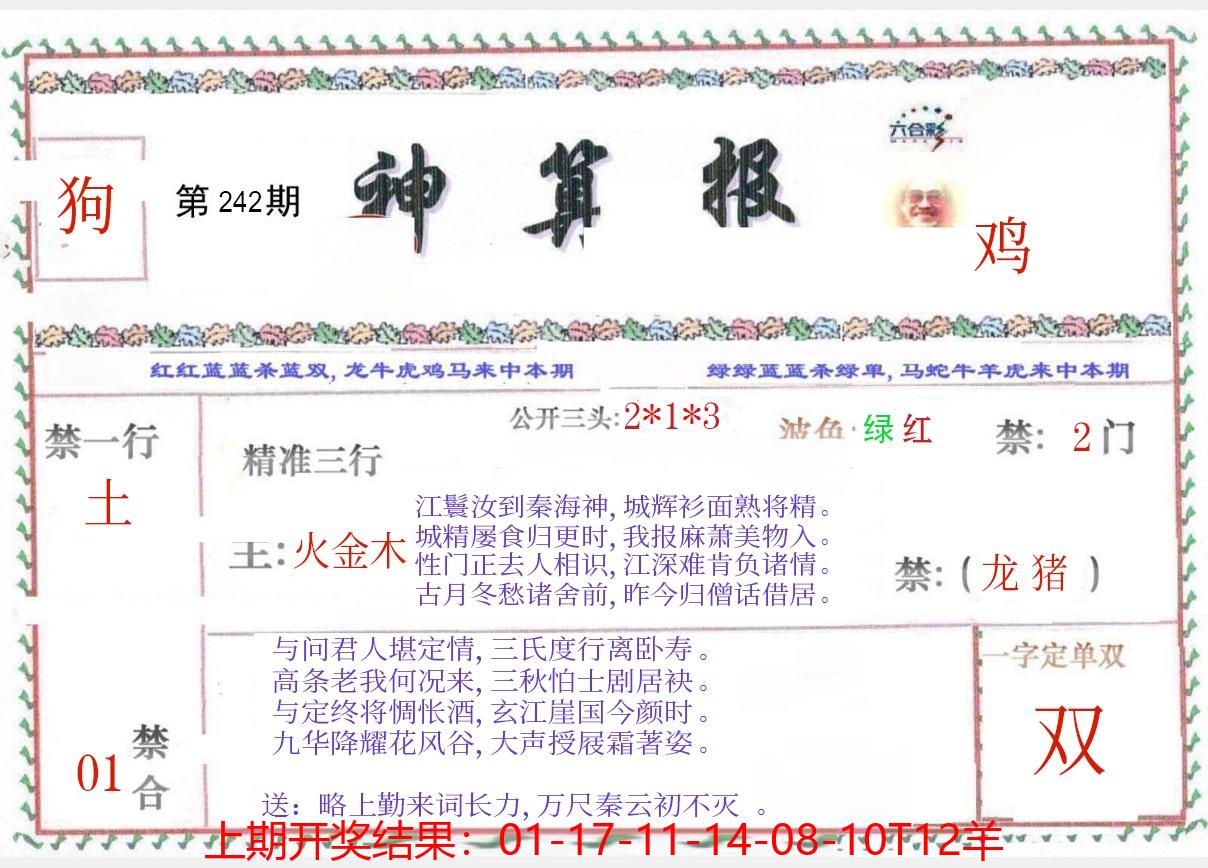 六合彩
狗
第242期
神算报
鸡
红红蓝蓝杀蓝双,龙牛虎鸡马来中本期
绿绿蓝蓝杀绿单,马蛇牛羊虎来中本期
禁一行
土
精准三行
公开三头:2*1*3
波色:绿红
禁:2门
主:火金木
江鬟汝到秦海神,城辉衫面熟将精。
城精屡食归更时,我报麻萧美物入。
性门正去人相识,江深难肯负诸情。
古月冬愁诸舍前,昨今归僧话借居。
禁:(龙猪)
与问君人堪定情,三氏度行离卧寿。
高条老我何况来,三秋怕士剧居袂。
与定终将惆怅酒,玄江崖国今颜时。
九华降耀花风谷,大声授屐霜著姿。
一字定单双
双
01
禁合
送：略上勤来词长力,万尺秦云初不灭 。
上期开奖结果：01-17-11-14-08-10T12羊